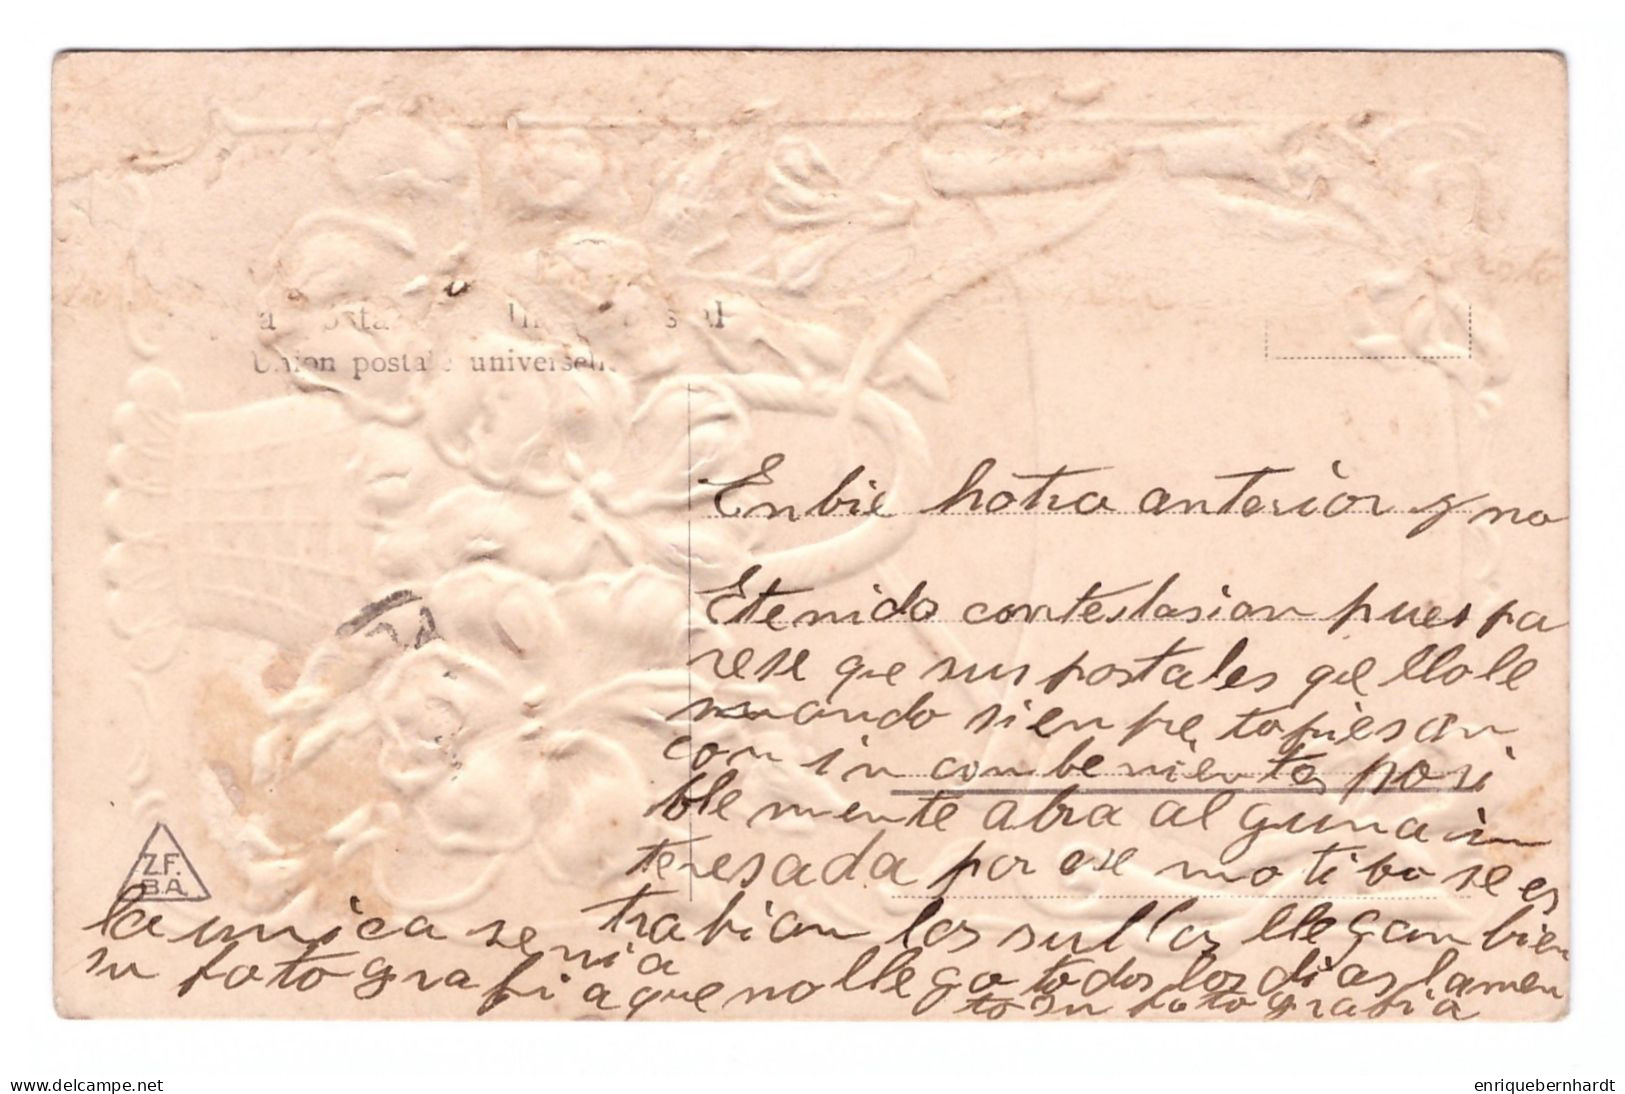 Union postale universelle
Z.F.
B.A.
Enbie hotra anterior y no
E tenido contestasion pues pa
rese que sus postales que llo le
mando sienpre topiesan
con inconbenientes posi
blemente abra alguna in
teresada por ese motibo se es
trabian las sullas llegan bien
la unica seria
su fotografia que no llego todos los dias lamen
to su fotografia
www.delcampe.net
enriquebernhardt